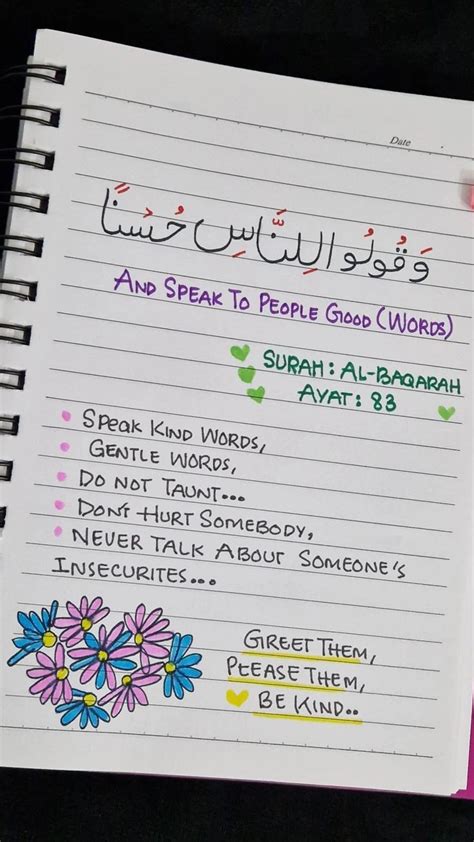 Date
وَقُولُوا لِلنَّاسِ حُسْنًا
AND SPEAK TO PEOPLE GOOD (WORDS)
SURAH: AL-BAQARAH
AYAT: 83
SPEAK KIND WORDS,
GENTLE WORDS,
DO NOT TAUNT...
DON'T HURT SOMEBODY,
NEVER TALK ABOUT SOMEONE'S
INSECURITES...
GREET THEM,
PLEASE THEM,
BE KIND..